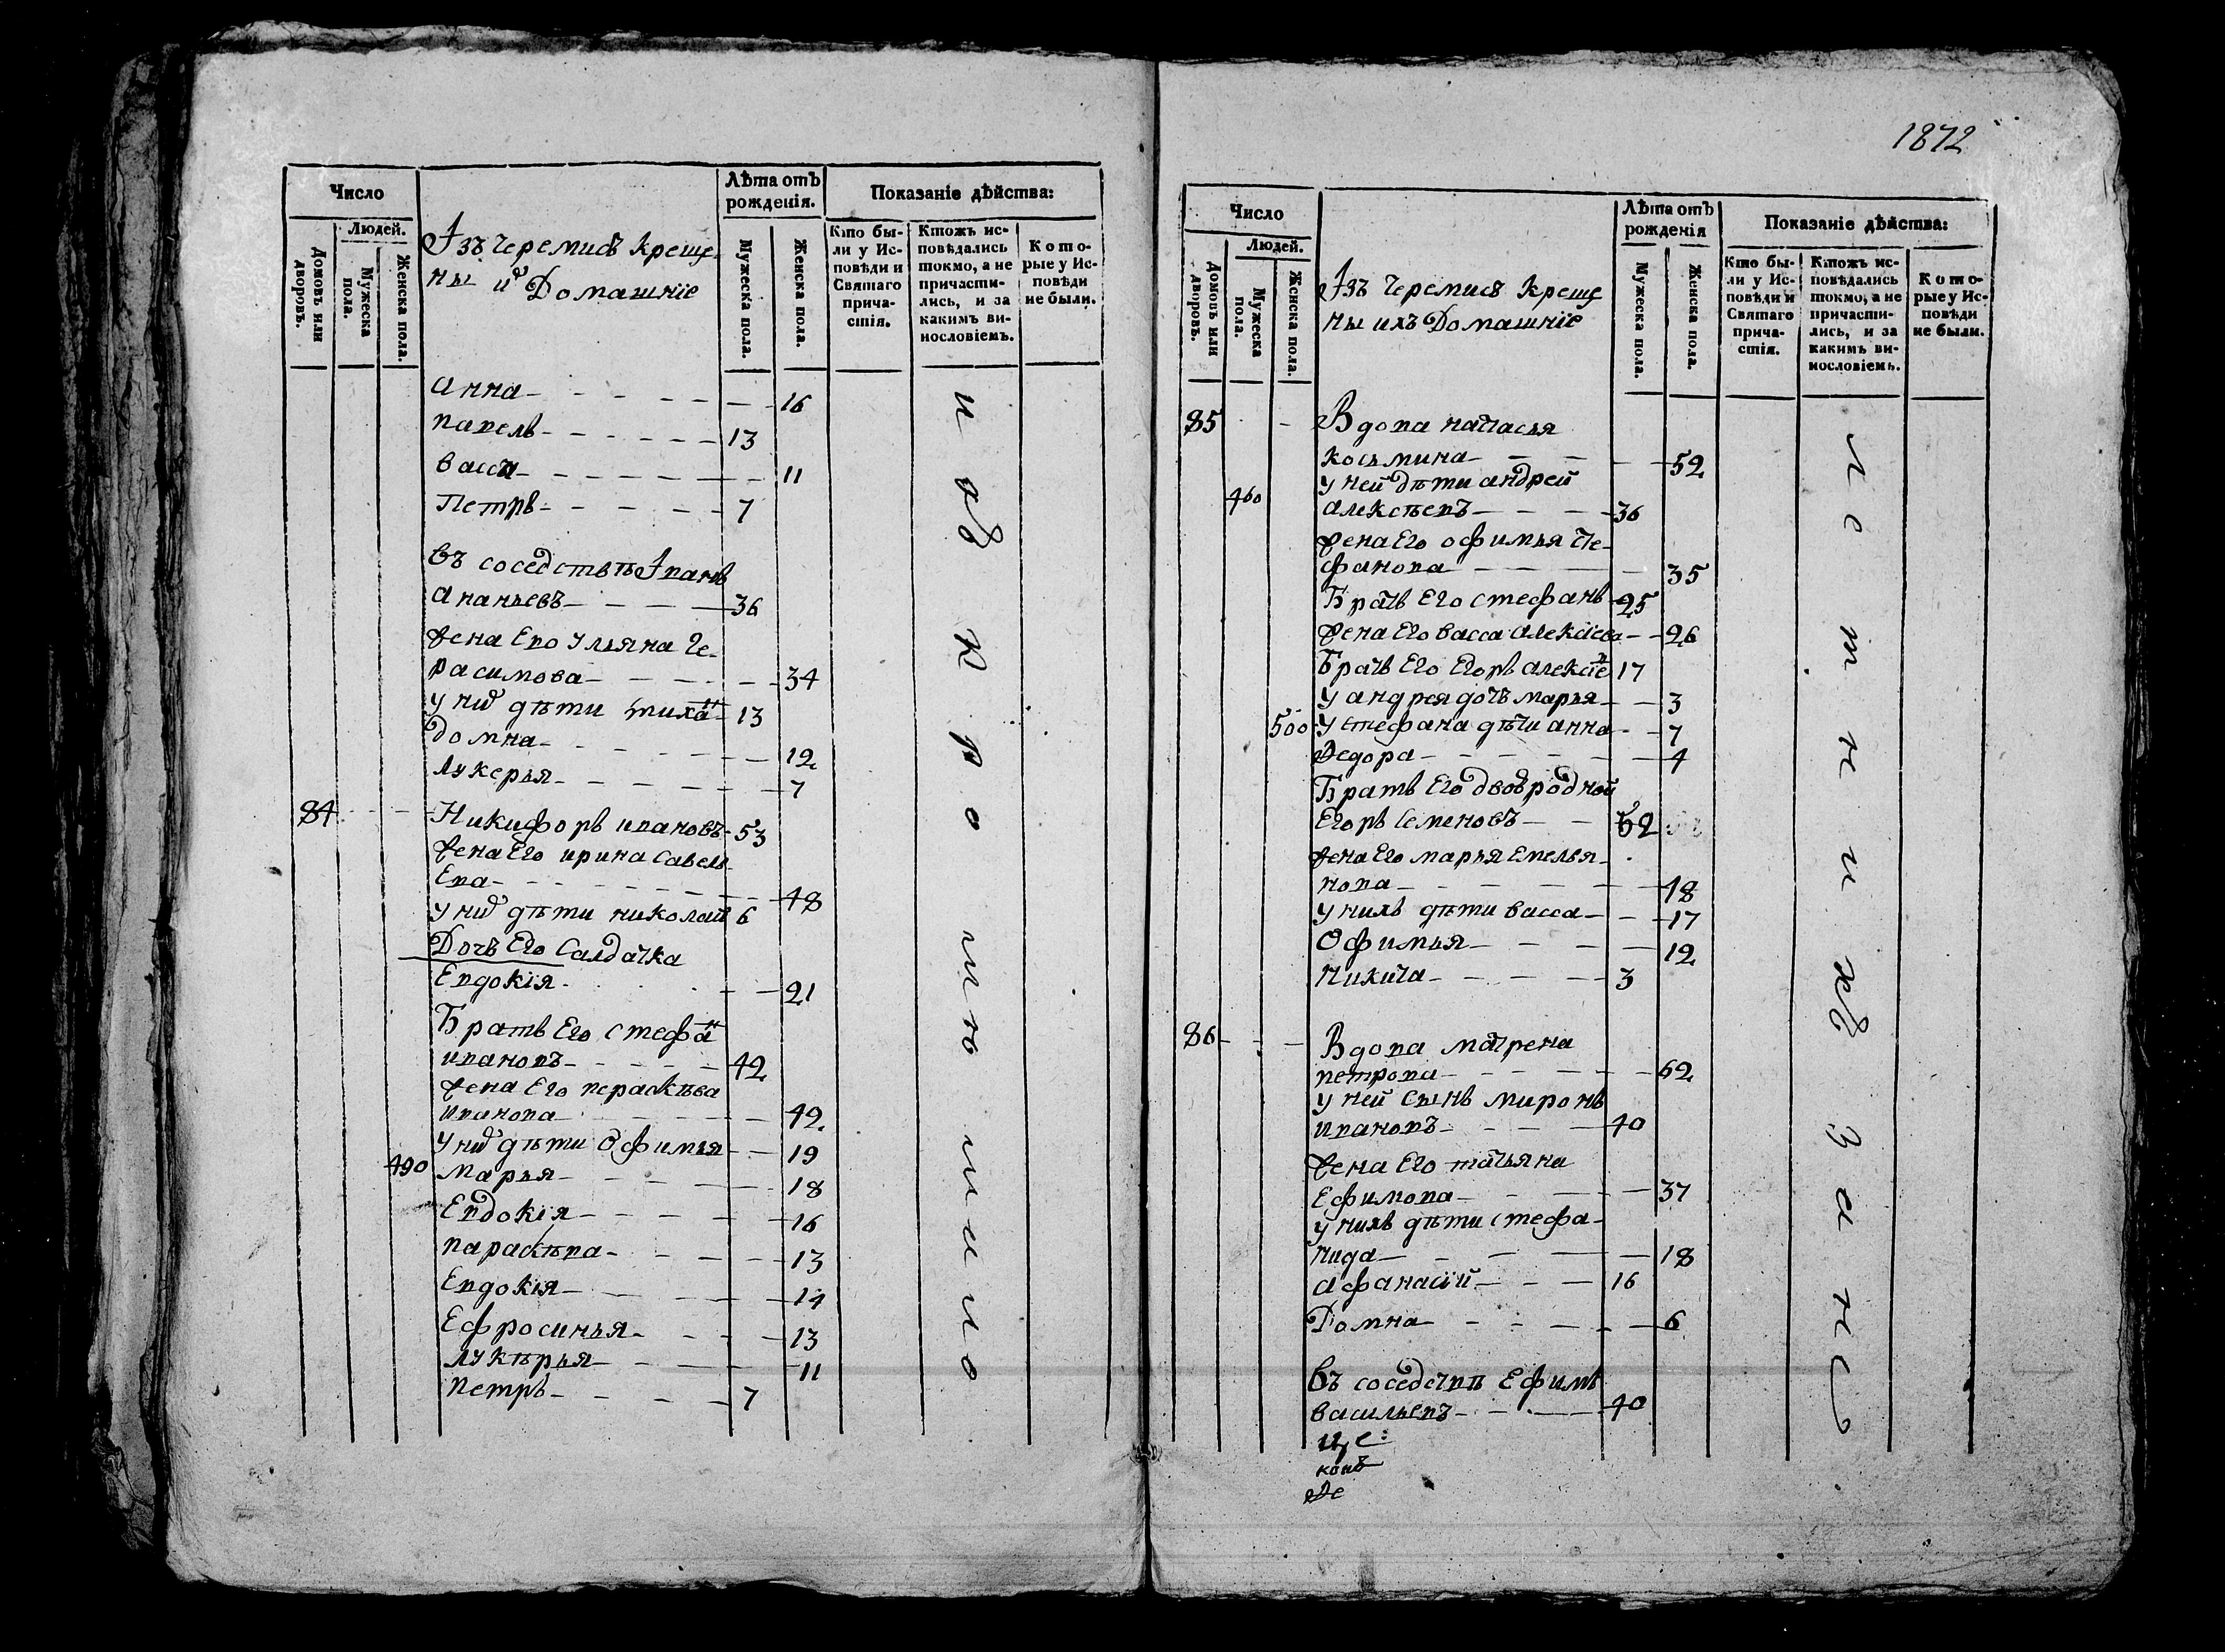 1872
Число
Людей.
Домовъ или дворовъ.
Мужеска пола.
Женска пола.
Ізъ черемисъ креще
ны ихъ Домашніе
Лѣта отъ
рожденія.
Мужеска пола.
Женска пола.
Показаніе дѣйства:
Кто бы-
ли у Ис-
повѣди и
Святаго
прича-
стія.
Ктожъ ис-
повѣдались
токмо, а не
причасти-
лись, и за
какимъ ви-
нословіемъ.
Кото-
рые у Ис-
повѣди
не были.
анна 16
павелъ 13
васса 11
Петръ 7
въ соседствѣ Іванъ
ананьевъ 36
жена Ево Ульяна Ге-
расимова 34
у них дѣти тихан 13
домна 12
лукерья 7
84 Никифоръ ивановъ 53
жена Его ирина савель
Ева 48
у них дѣти николай 6
Дочъ Его Салдатка
Евдокія 21
Братъ Его Стефан
ивановъ 42
жена Его пераскѣва
иванова 42
у них дѣти Офимья 19
490 марья 18
Евдокія 16
параскѣва 13
Евдокія 14
Ефросинья 13
лукѣрья 11
петръ 7
Число
Людей.
Домовъ или дворовъ.
Мужеска пола.
Женска пола.
Ізъ черемисъ креще
ны ихъ Домашніе
Лѣта отъ
рожденія
Мужеска пола.
Женска пола.
Показаніе дѣйства:
Кто бы-
ли у Ис-
повѣди и
Святаго
прича-
стія.
Ктожъ ис-
повѣдались
токмо, а не
причасти-
лись, и за
какимъ ви-
нословіемъ.
Кото-
рые у Ис-
повѣди
не были.
85 Вдова настасья
косьмина 52
у ней дѣти андрей
460 алексѣевъ 36
жена Его офимья сте-
фанова 35
Братъ Его стефанъ 25
жена Его васса алексіева 26
Братъ Его Егоръ алексіев 17
у андрея дочъ марья 3
500 у стефана дѣти анна 7
Федора 4
Братъ Его двоюродной
Егоръ семеновъ 62
жена Его марья Емелья-
нова 48
у нихъ дѣти васса 17
Офимья 12
никита 3
86 Вдова матрена
петрова 62
у ней сынъ миронъ
ивановъ 40
жена Его татьяна
Ефимова 37
у нихъ дѣти стефа-
нида 18
афанасій 16
Домна 6
въ соседствѣ Ефимъ
васильевъ 40